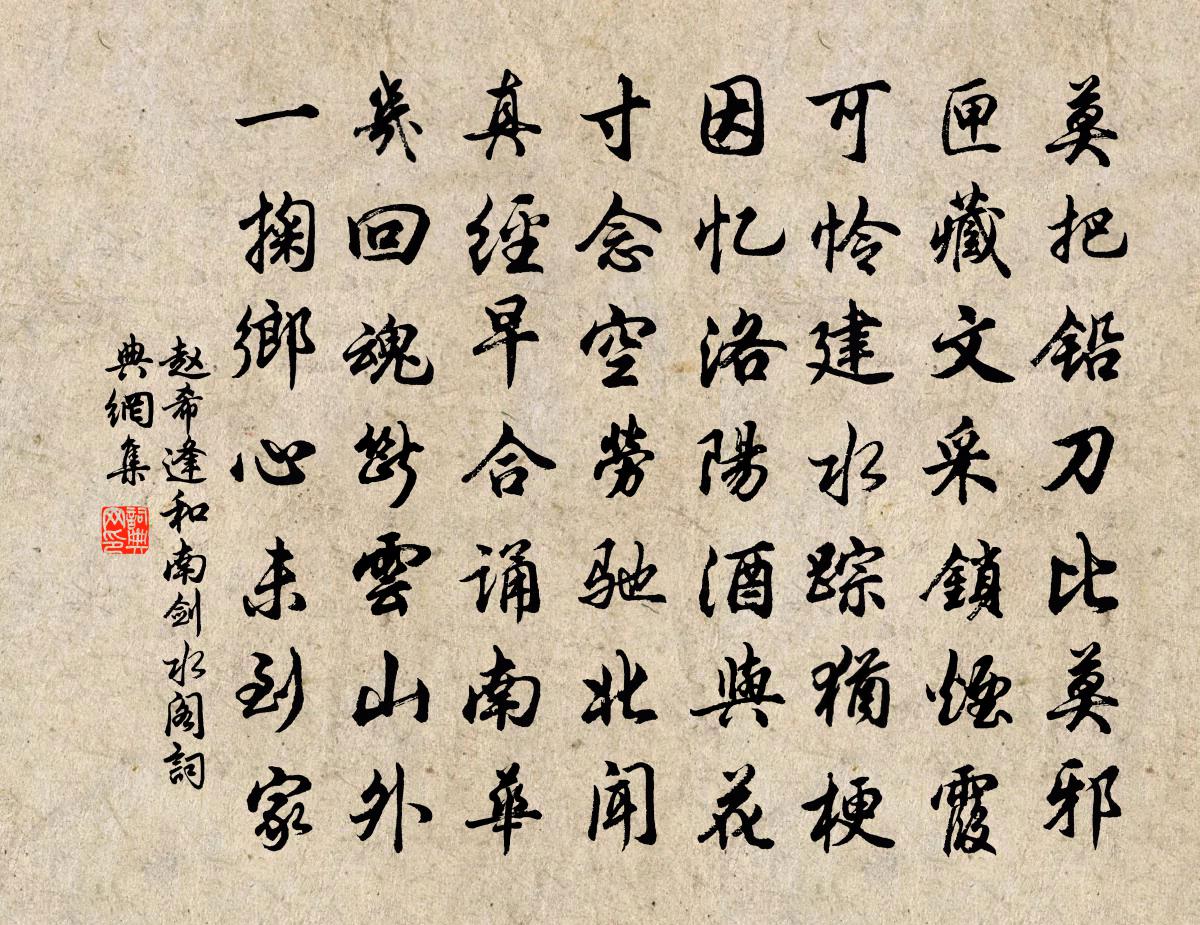 莫把铅刀比莫邪
匣藏文采鎖煙霞
可怜建水踪猶梗
因忆洛陽酒與花
寸念空勞驰北闻
真經早合诵南華
幾回魂斷雲山外
一掬鄉心未到家
赵希逢和南剑水阁詞
典網集
詞典网印